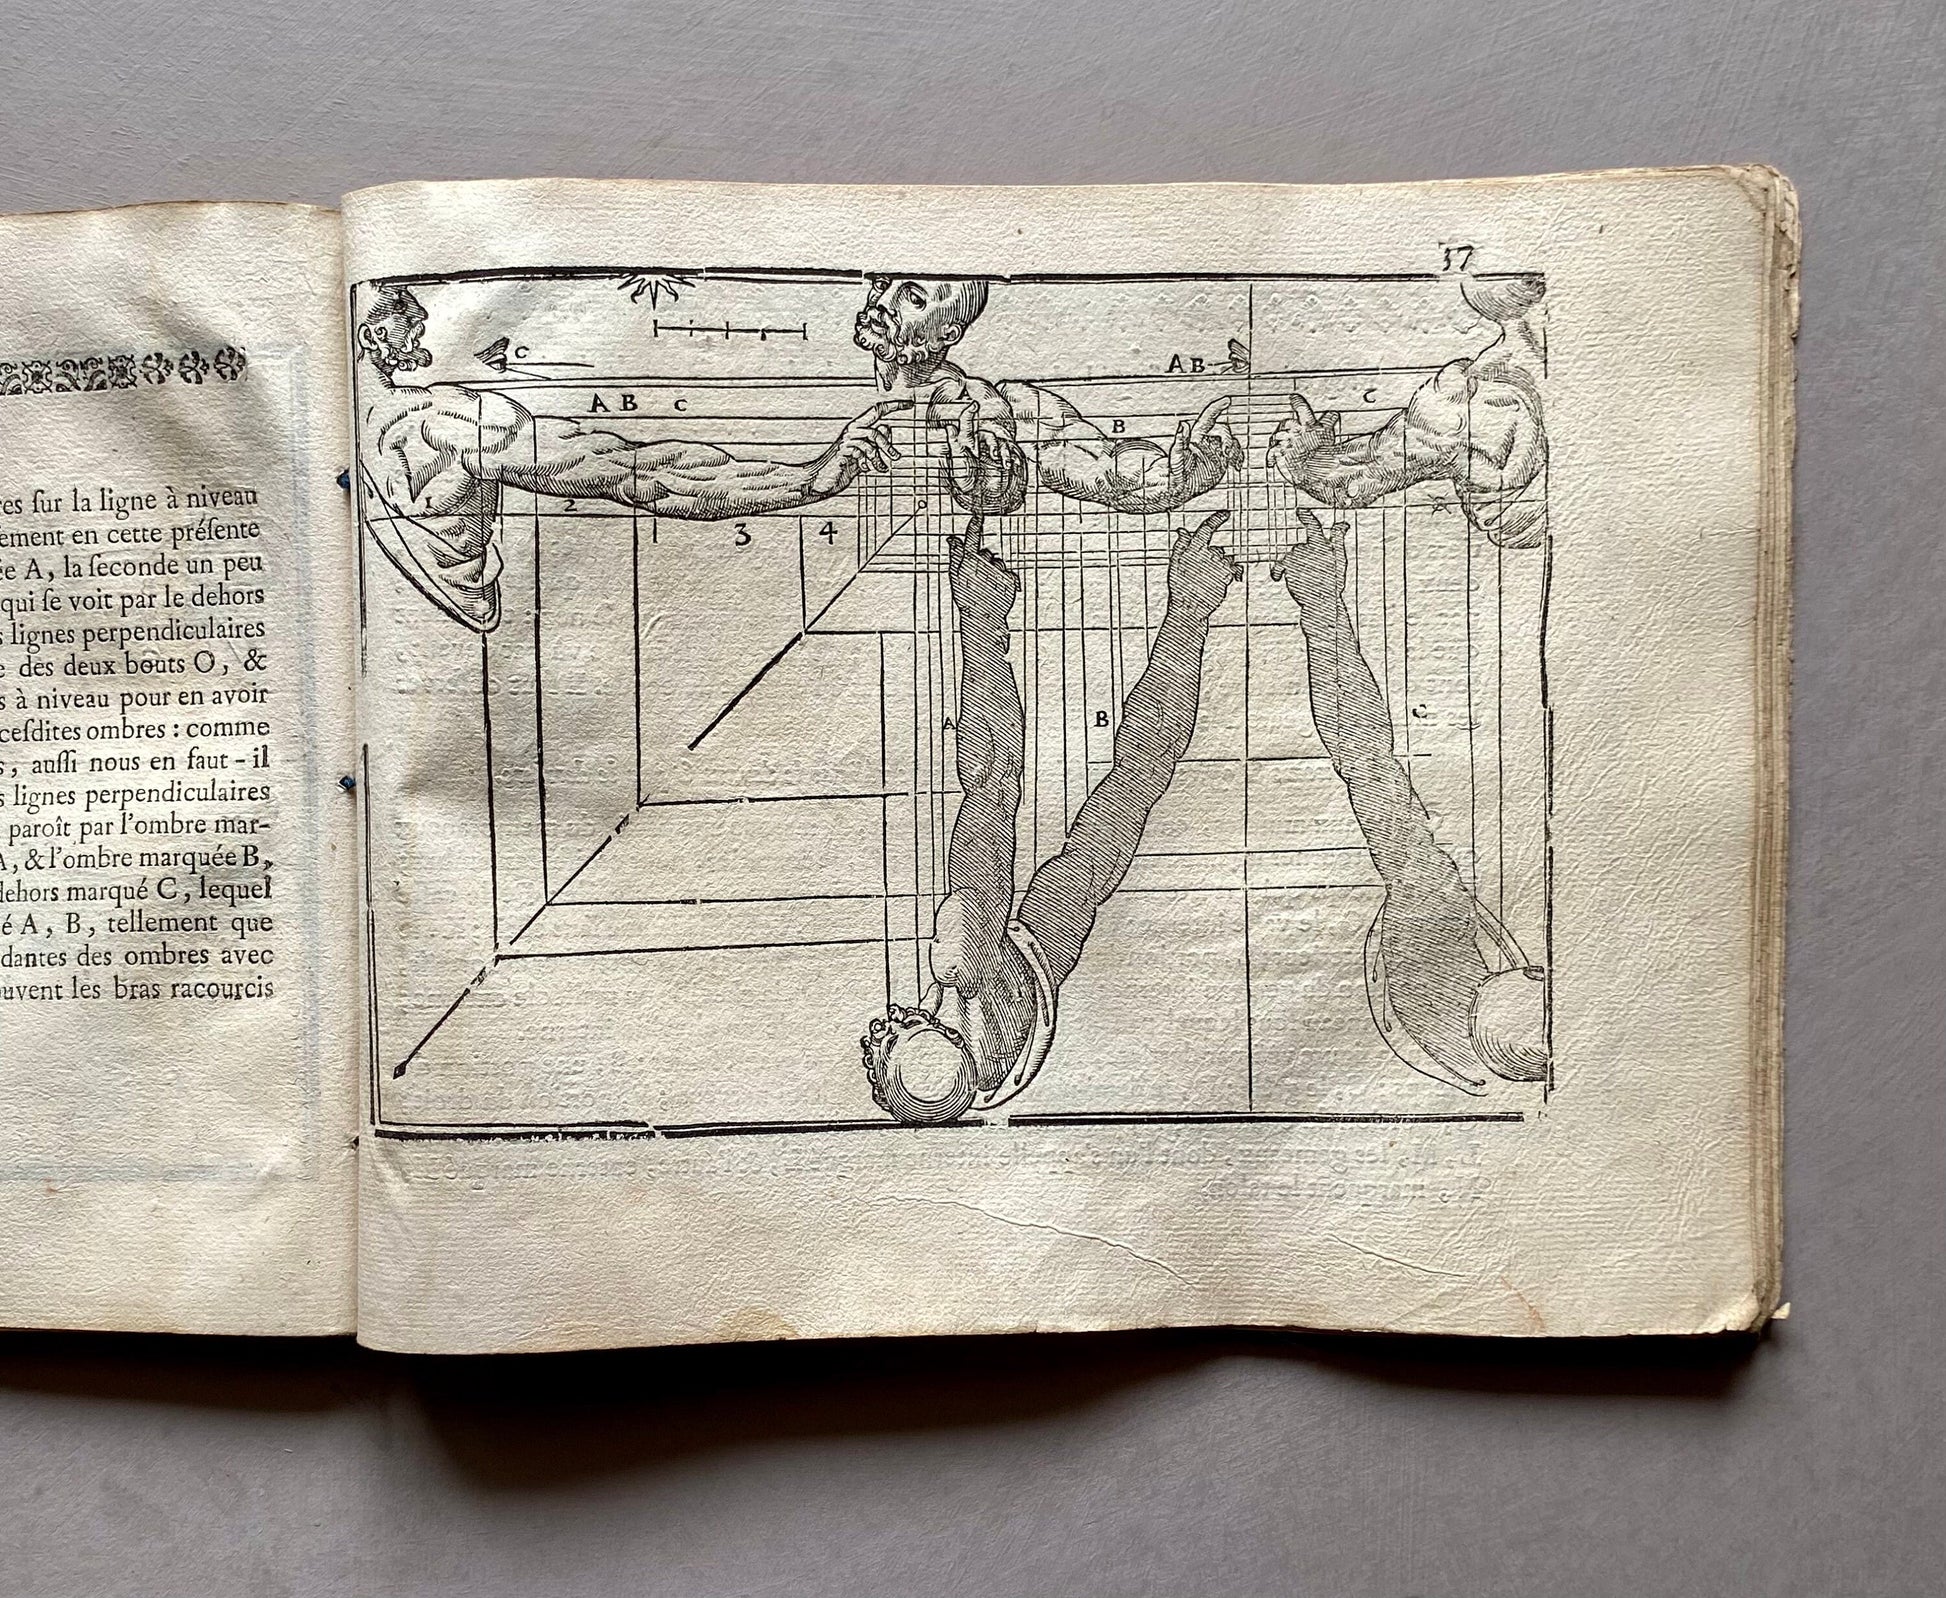 res ſur la ligne à niveau
ement en cette préſente
ée A, la ſeconde un peu
qui ſe voit par le dehors
s lignes perpendiculaires
e des deux bouts O, &
s à niveau pour en avoir
ceſdites ombres : comme
s, auſſi nous en faut-il
s lignes perpendiculaires
paroît par l'ombre mar-
A, & l'ombre marquée B,
dehors marqué C, lequel
é A, B, tellement que
dantes des ombres avec
ouvent les bras racourcis
37
C
A B
A B C
A
B
C
1
2
3
4
O
A
B
C